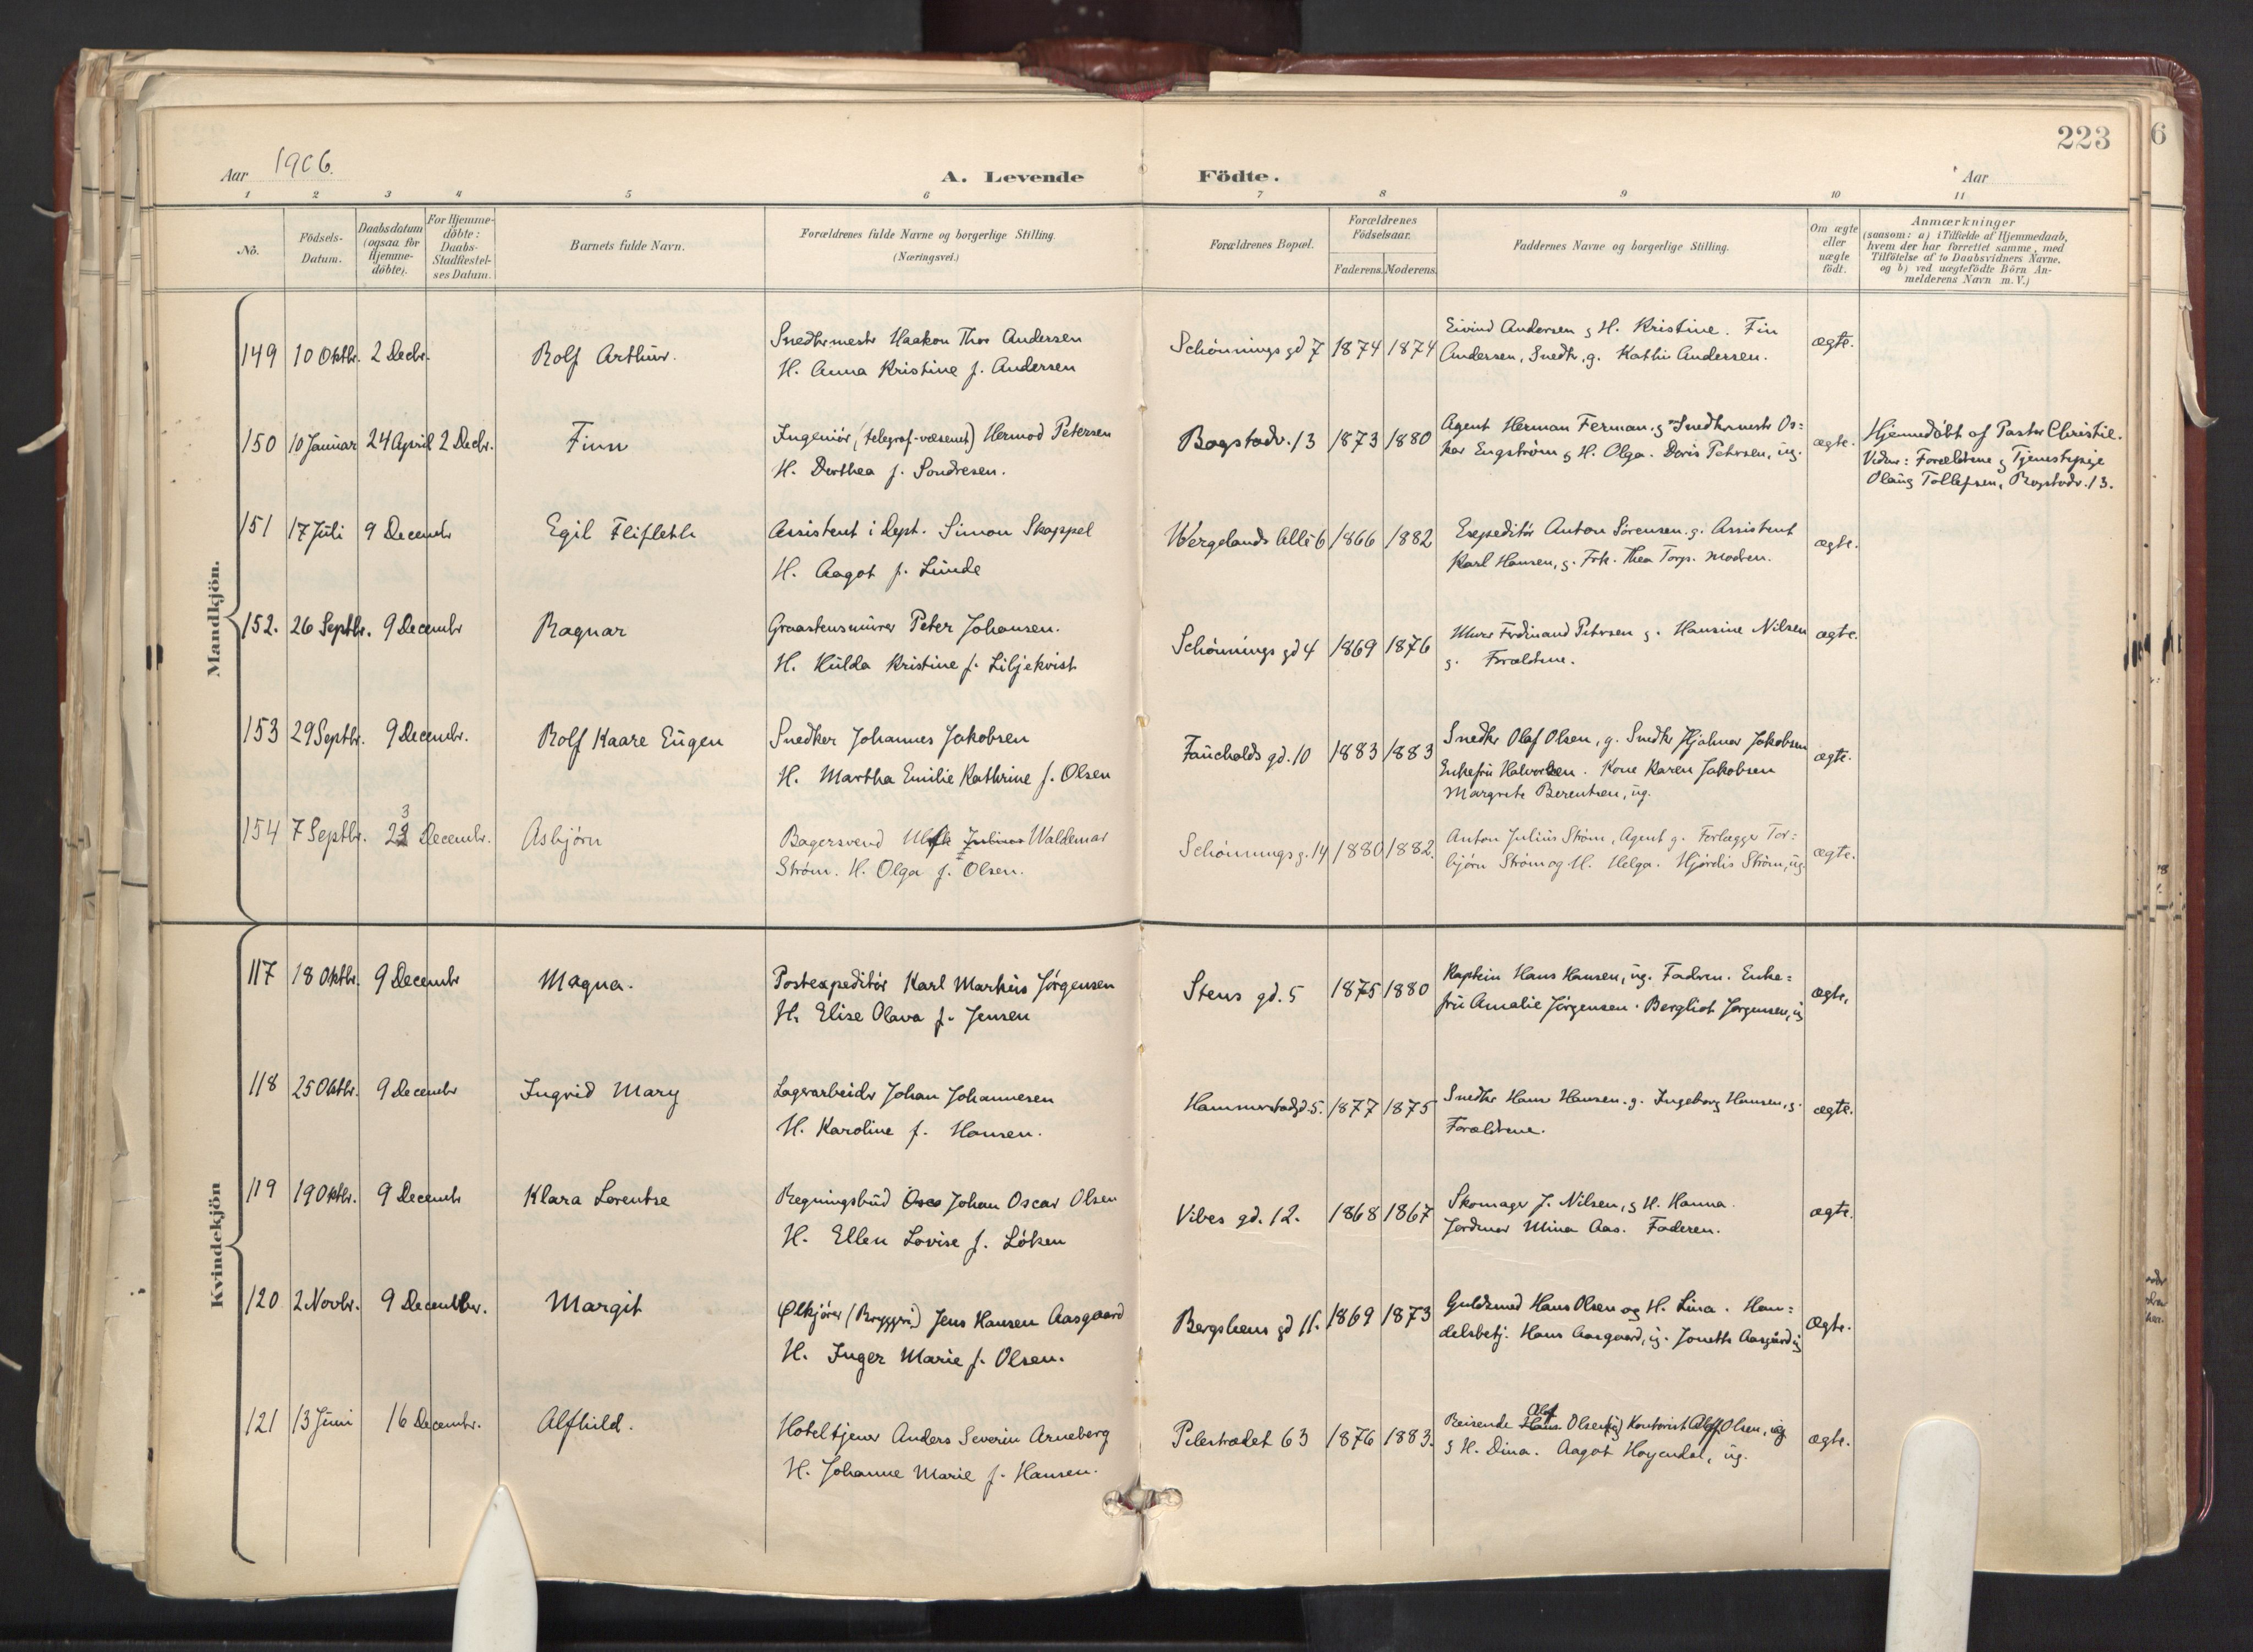 223
6
Aar 1906.
A. Levende Födte.
Aar
1 2 3 4 5 6 7 8 9 10 11
No.
Födsels-
Datum.
Daabsdatum
(ogsaa for
Hjemme-
döbte).
For Hjemme-
döbte:
Daabs-
Stadfæstel-
ses Datum.
Barnets fulde Navn.
Forældrenes fulde Navne og borgerlige Stilling.
(Næringsvei.)
Forældrenes Bopæl.
Forældrenes
Födselsaar.
Faderens. Moderens.
Faddernes Navne og borgerlige Stilling.
Om ægte
eller
uægte
födt.
Anmærkninger
(saasom: a) i Tilfælde af Hjemmedaab,
hvem der har forrettet samme, med
Tilföielse af to Daabsvidners Navne,
og b) ved uægtefödte Börn An-
melderens Navn m. V.)
Mandkjön.
149 10 Oktbr. 2 Decbr. Rolf Arthur.
Snedkermestr Haakon Thor Andersen
H. Anna Kristine f. Andersen
Schønnings gd 7 1874 1874
Eivind Andersen g H. Kristine. Fin
Andersen, Snedkr, g. Kathi Andersen.
ægte.
150 10 Januar 24 April 2 Decbr. Finn
Ingeniør (telegraf-væsenet) Hermod Petersen
H. Dorthea f. Sondresen.
Bogstadv. 13 1873 1880
Agent Herman Ferman. g Snedkrmestr Os=
kar Engstrøm g H. Olga. Doris Petersen, ug.
ægte.
Hjemmedøbt af Pastor Christie.
Vidner: Forældrene g Tjenestepige
Olaug Tollefsen, Bogstadv. 13.
151 17 Juli 9 Decembr Egil Fliflethh
Assistent i Dept. Simon Skappel
H. Aagot f. Lunde
Wergelands Alle 6 1866 1882
Expeditør Anton Sørensen. g. Assistent
Karl Hansen, g. Frk. Thea Torp. Modren.
ægte.
152. 26 Septbr. 9 Decembr Ragnar
Graastensmurer Peter Johansen.
H. Hulda Kristine f. Liljekvist
Schønnings gd 4 1869 1876
Murer Ferdinand Petersen g. Hansine Nilsen
g. Forældrene.
ægte.
153 29 Septbr. 9 Decembr. Rolf Kaare Eugen
Snedker Johannes Jakobsen
H. Martha Emilie Kathrine f. Olsen
Fauchalds gd. 10 1883 1883
Snedkr Olaf Olsen, g. Snedkr Hjalmar Jakobsen
Enkefru Halvorsen. Kone Karen Jakobsen
Margrete Berentsen, ug.
ægte.
154 7 Septbr. 23 Decembr. Asbjørn
Bagersvend Julius Waldemar
Strøm. H. Olga f. Olsen.
Schønnings g. 14 1880 1882.
Anton Julius Strøm, Agent g. Forlægger Tor=
bjørn Strøm og H. Helga. Hjørdis Strøm, ug
ægte.
Kvindekjön
117 18 Oktbr. 9 Decembr Magna.
Postexpeditør Karl Markus Jørgensen
H. Elise Olava f. Jensen
Stens gd. 5 1875 1880
Kaptein Hans Hansen, ug. Fadren. Enke=
fru Amalie Jørgensen. Bergliot Jørgensen, ug
ægte.
118 25 Oktbr. 9 Decembr Ingrid Mary
Lagerarbeider Johan Johannesen
H. Karoline f. Hansen.
Hammerstadgd. 5. 1877 1875
Snedkr Hans Hansen. g. Ingeborg Hansen, g.
Forældrene.
ægte.
119 19 Oktbr. 9 Decembr Klara Lorentse
Regningsbud Osca Johan Oscar Olsen
H. Ellen Lovise f. Løken
Vibes gd. 12. 1868 1867
Skomager J. Nilsen, g H. Hanna.
Jordmor Mina Aas. Faderen.
ægte.
120 2 Novbr. 9 December. Margit
Ølkjører (Bryggeri) Jens Hansen Aasgaard
H. Inger Marie f. Olsen.
Bergsliens gd 11. 1869 1873
Guldsmed Hans Olsen og H. Lina. Han=
delsbetj. Hans Aasgaard, ug. Jonette Aasgård ug
ægte.
121 13 Juni 16 Decembr. Alfhild.
Hoteltjener Anders Severin Arneberg
H. Johanne Marie f. Hansen.
Pilestrædet 63 1876 1883.
Olaf
Reisende Hans Olsen (ug) Kontorist Olsen, ug
g H. Dina. Aagot Høyendal, ug.
ægte.